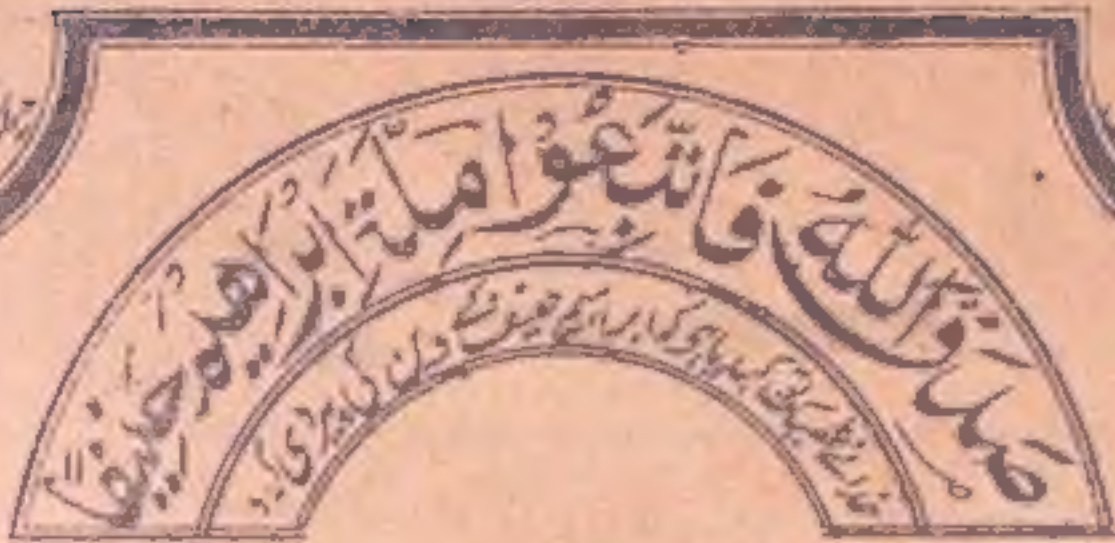 صَدَقَ اللهُ فَاتَّبِعُوْا مِلَّةَ اِبْرَاهِيْمَ حَنِيْفًا
خدا نے کہدیا ہے کہ ابراہیم حنیف کے دین کی پیروی کرو